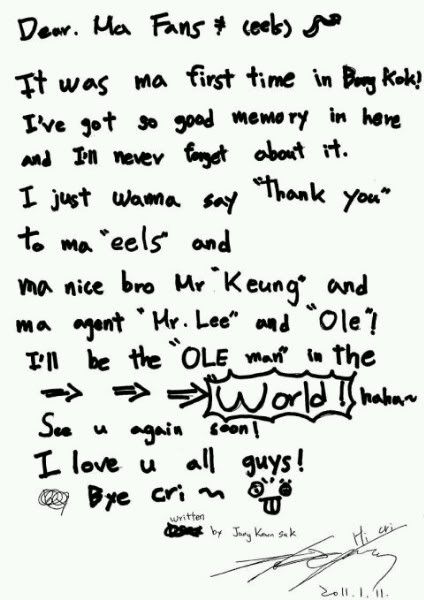 Dear. Ma Fans & (eels)
It was ma first time in Bang Kok!
I've got so good memory in here
and I'll never forget about it.
I just wanna say "Thank you"
to ma "eels" and
ma nice bro Mr "Keung" and
ma agent "Mr. Lee" and "Ole"!
I'll be the "OLE man" in the
⇒ ⇒ ⇒ World! haha~
See u again soon!
I love u all guys!
Bye cri ~
written
by Jang Keun suk
Hi cri
2011.1.11.